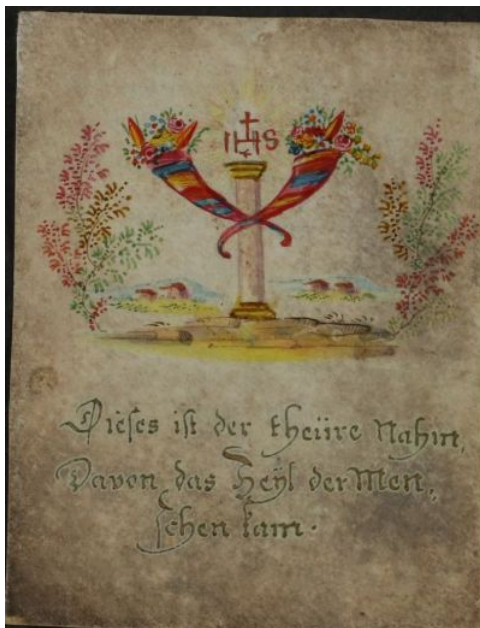 IHS
Dieses ist der theüre Nahm,
Davon das Heÿl der Men,
schen kam.